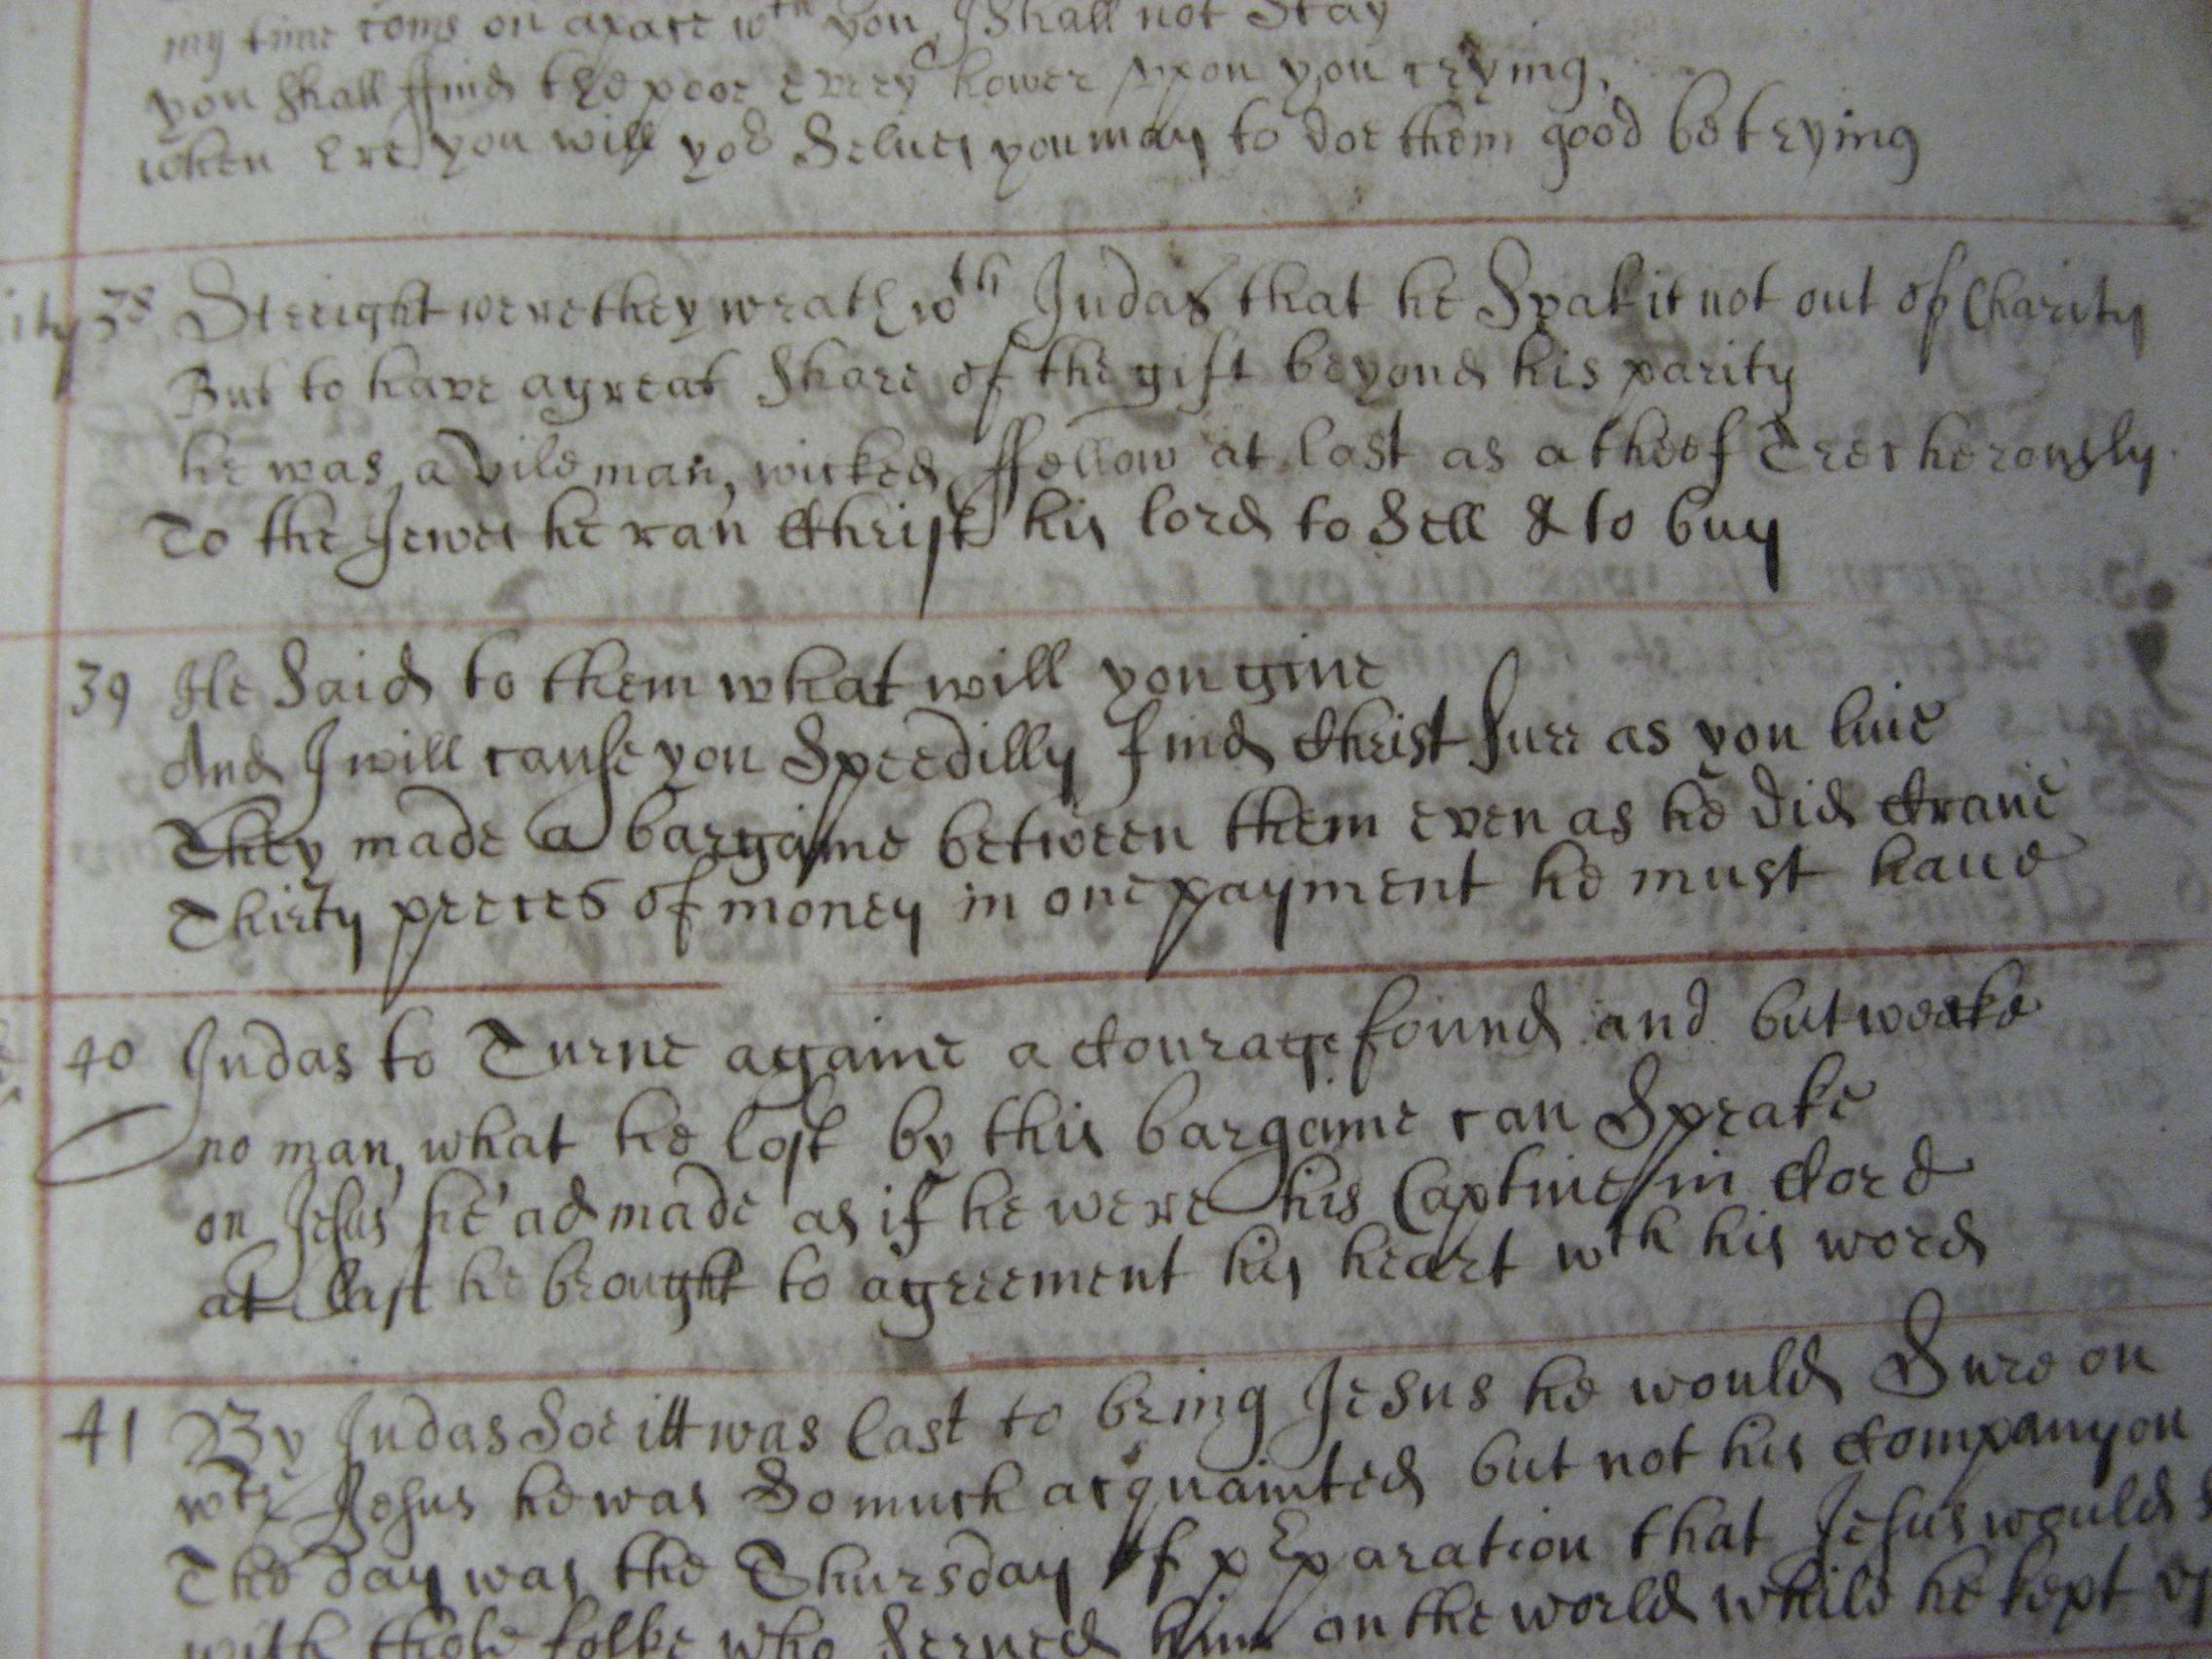 my time coms on apace wth you I shall not Stay
you shall ffind the poor every hower vpon you crying,
when ere you will yor Selues you may to doe them good be trying
ity 38 Streight were they wrath wth Judas that he Spak it not out of Charity
But to have a great Share of the gift beyond his parity
he was a vile man, wicked ffellow at last as a theef Trecherously
To the Jewes he ran Christ his lord to Sell & to buy
39 He Said to them what will you giue
And I will cause you Speedilly find Christ sure as you liue
They made a bargaine between them even as he did Craue
Thirty peeces of money in one payment he must haue
40 Judas to Turne againe a Courage found and but weake
no man, what he lost by this bargaine can Speake
on Jesus he'ad made as if he were his Captiue in Cord
at last he brought to agreement his heart wth his word
41 By Judas Soe itt was last to bring Jesus he would Sure on
wth Jesus he was So much acquainted but not his Companyon
The day was the Thursday of pEparation that Jesus would
with those folke who Serued him on the world while he kept